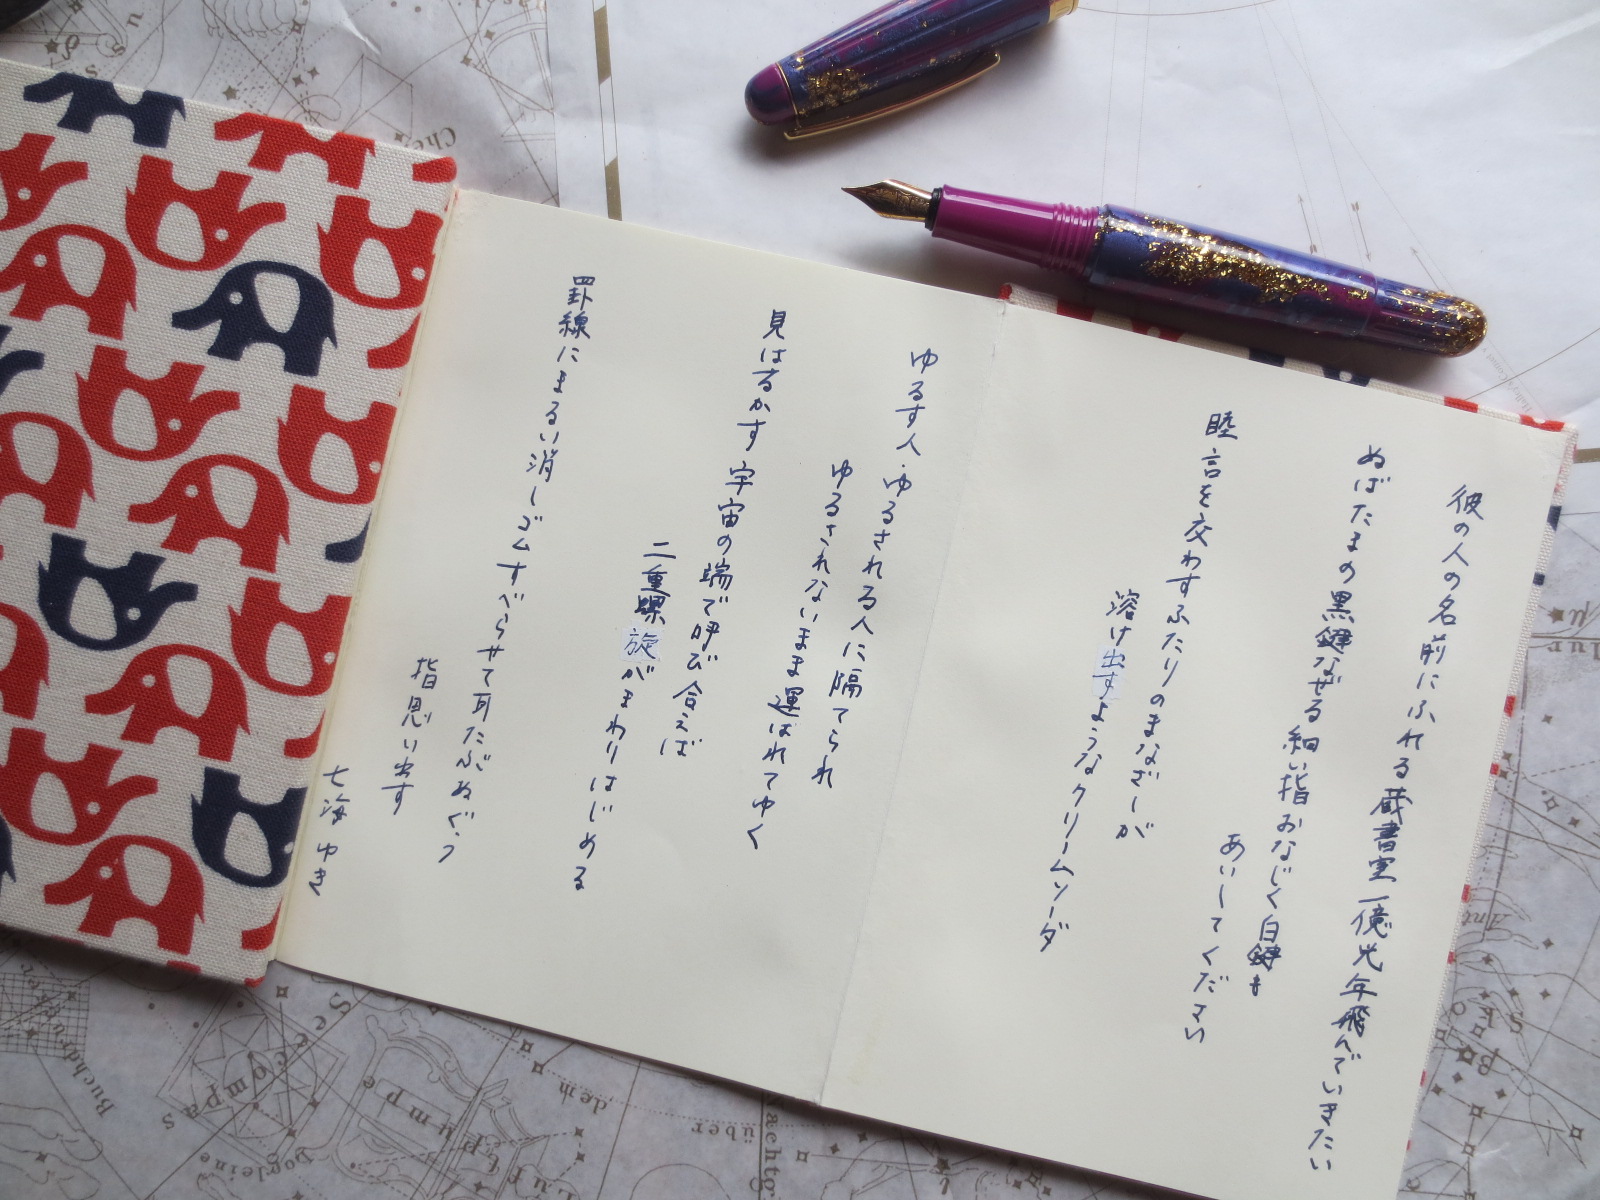 彼の人の名前にふれる蔵書室一億光年飛んでいきたい
ぬばたまの黒鍵なぜる細い指おなじく白鍵も
あいしてください
睦言を交わすふたりのまなざしが
溶け出すようなクリームソーダ
ゆるす人・ゆるされる人に隔てられ
ゆるされないまま運ばれてゆく
見はるかす宇宙の端で呼び合えば
二重螺旋がまわりはじめる
罫線にまるい消しゴムすべらせて耳たぶぬぐう
指思い出す
七海ゆき
Seecompass
Buchdrucker
Luftpumpe
über
dem